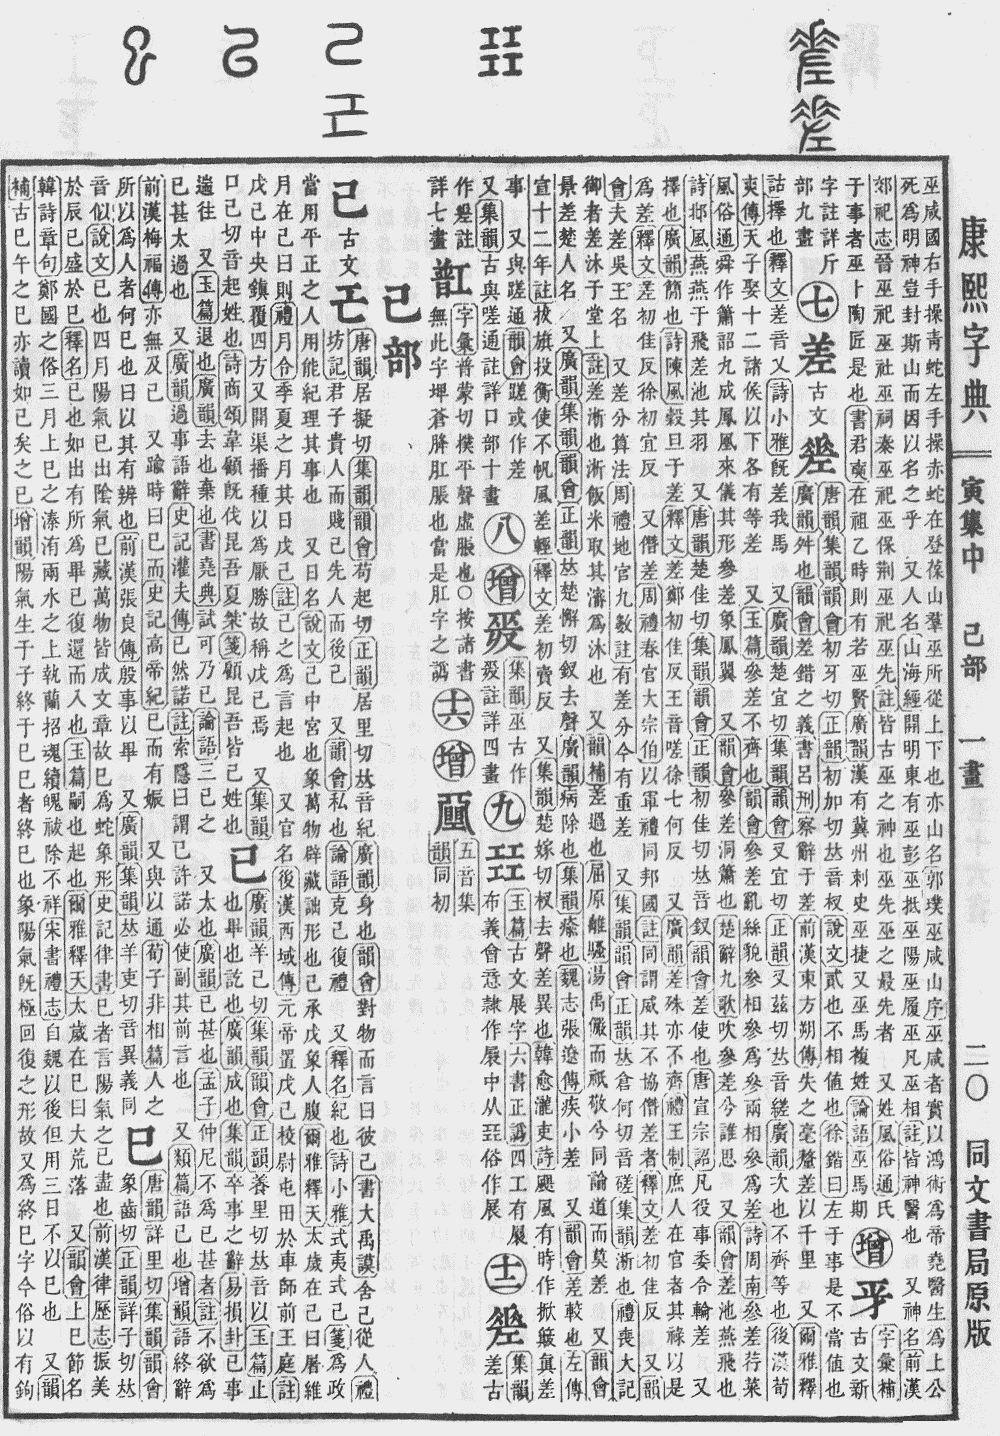 康熙字典　寅集中　己部　一畫　二〇　同文書局原版
巫咸國右手操青蛇左手操赤蛇在登葆山羣巫所從上下也亦山名郭璞巫咸山序巫咸者實以鴻術爲帝堯醫生爲上公
死爲明神豈封斯山而因以名之乎　又人名山海經開明東有巫彭巫抵巫陽巫履巫凡巫相註皆神醫也　又神名前漢
郊祀志晉巫祀巫社巫祠秦巫祀巫保荆巫祀巫先註皆古巫之神也巫先巫之最先者　又姓風俗通氏
于事者巫卜陶匠是也書君奭在祖乙時則有若巫賢廣韻漢有冀州刺史巫捷又巫馬複姓論語巫馬期　增　字彙補古文新
字註詳斤部九畫　七　差　古文　唐韻集韻韻會初牙切正韻初加切𠀤音杈說文貳也不相值也徐鍇曰左于事是不當值也
廣韻舛也韻會差錯之義書呂刑察辭于差前漢東方朔傳失之毫釐差以千里　又爾雅釋
詁擇也釋文差音叉詩小雅旣差我馬　又廣韻楚宜切集韻韻會叉宜切正韻叉茲切𠀤音縒廣韻次也不齊等也後漢荀
爽傳天子娶十二諸候以下各有等差　又玉篇參差不齊也韻會參差亂絲貌參相參爲參兩相參爲差詩周南參差荇菜
風俗通舜作簫韶九成鳳凰來儀其形參差象鳳翼　又韻會參差洞簫也楚辭九歌吹參差兮誰思　又韻會差池燕飛也
詩邶風燕燕于飛差池其羽　又唐韻楚佳切集韻韻會正韻初佳切𠀤音釵韻會差使也唐宣宗詔凡役事委令輪差　又
擇也廣韻簡也詩陳風穀旦于差釋文差鄭初佳反王音嗟徐七何反　又廣韻差殊亦不齊禮王制庶人在官者其祿以是
爲差釋文差初佳反徐初宜反　又僭差周禮春官大宗伯以軍禮同邦國註同謂威其不協僭差者釋文差初佳反　又韻
會夫差吳王名　又差分算法周禮地官九數註有差分今有重差　又集韻韻會正韻𠀤倉何切音磋集韻淅也禮喪大記
御者差沐于堂上註差淅也淅飯米取其潘爲沐也　又韻補差過也屈原離騷湯禹儼而祇敬兮同論道而莫差　又韻會
景差楚人名　又廣韻集韻韻會正韻𠀤楚懈切釵去聲廣韻病除也集韻瘉也魏志張遼傳疾小差　又韻會差較也左傳
宣十二年註拔旆投衡使不帆風差輕釋文差初賣反　又集韻楚嫁切杈去聲差異也韓愈瀧吏詩颶風有時作掀簸眞差
事　又與蹉通韻會蹉或作差
又集韻古與嗟通註詳口部十畫　八　增　集韻巫古作　註詳四畫　九　㠭　玉篇古文展字六書正譌四工有展布義會意隷作展中从㠭俗作展　十一　集韻差古
作　註詳七畫　字彙普蒙切樸平聲虛脹也○按諸書無此字埤蒼胮肛脹也當是肛字之譌　十六　增　五音集韻同初
己部
己　古文　唐韻居擬切集韻韻會苟起切正韻居里切𠀤音紀廣韻身也韻會對物而言曰彼己書大禹謨舍己從人禮
坊記君子貴人而賤己先人而後己　又韻會私也論語克己復禮　又釋名紀也詩小雅式夷式己箋爲政
當用平正之人用能紀理其事也　又日名說文己中宮也象萬物辟藏詘形也己承戊象人腹爾雅釋天太歲在己曰屠維
月在己曰則禮月令季夏之月其日戊己註己之爲言起也　又官名後漢西域傳元帝置戊己校尉屯田於車師前王庭註
戊己中央鎭覆四方又開渠播種以爲厭勝故稱戊己焉　又集韻
口己切音起姓也詩商頌韋顧旣伐昆吾夏桀箋顧昆吾皆己姓也　已　廣韻羊己切集韻韻會正韻養里切𠀤音以玉篇止
也畢也訖也廣韻成也集韻卒事之辭易損卦已事
遄往　又玉篇退也廣韻去也棄也書堯典試可乃已論語三已之　又太也廣韻已甚也孟子仲尼不爲已甚者註不欲爲
已甚太過也　又廣韻過事語辭史記灌夫傳已然諾註索隱曰謂已許諾必使副其前言也　又類篇語已也增韻語終辭
前漢梅福傳亦無及已　又踰時曰已而史記高帝紀已而有娠　又與以通荀子非相篇人之
所以爲人者何已也曰以其有辨也前漢張良傳殷事以畢　又廣韻集韻𠀤羊吏切音異義同　巳　唐韻詳里切集韻韻會
象齒切正韻詳子切𠀤
音似說文巳也四月陽氣巳出陰氣巳藏萬物皆成文章故巳爲蛇象形史記律書巳者言陽氣之已盡也前漢律歷志振美
於辰已盛於巳釋名巳也如出有所爲畢已復還而入也玉篇嗣也起也爾雅釋天太歲在巳曰大荒落　又韻會上巳節名
韓詩章句鄭國之俗三月上巳之溱洧兩水之上執蘭招魂續魄祓除不祥宋書禮志自魏以後但用三日不以巳也　又韻
補古巳午之巳亦讀如已矣之已增韻陽氣生于子終于巳巳者終已也象陽氣旣極回復之形故又爲終已字今俗以有鉤